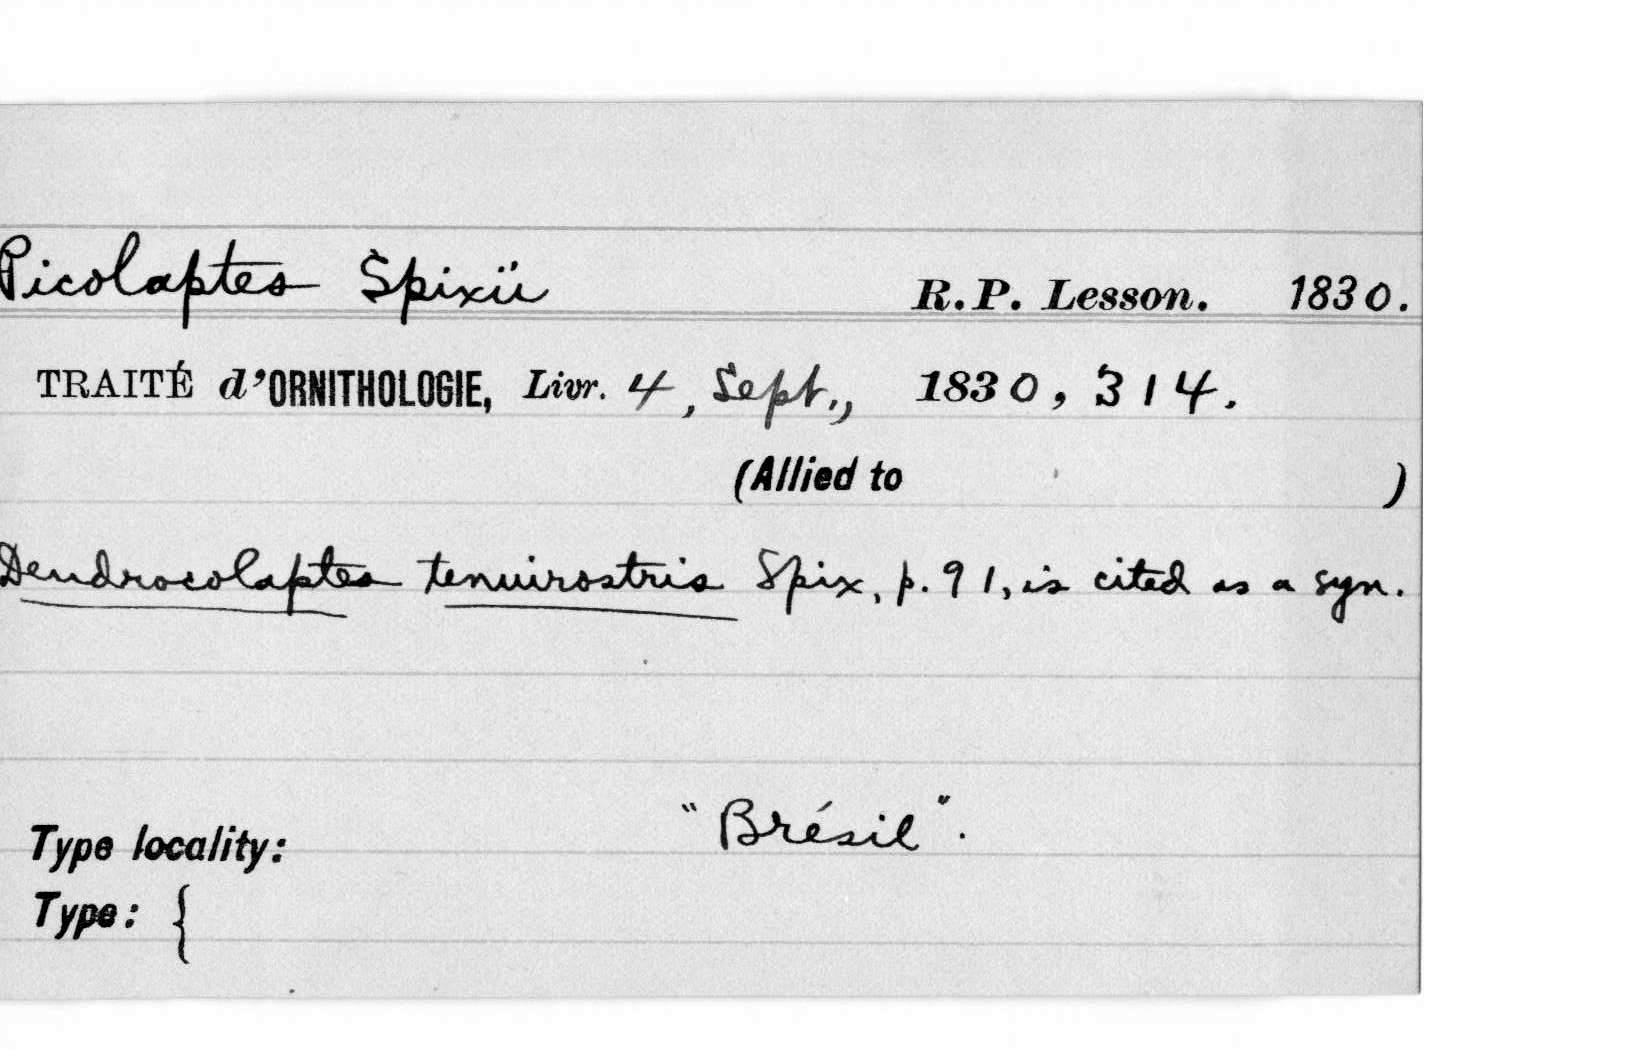 Picolaptes Spixii R.P. Lesson. 1830.
TRAITÉ d'ORNITHOLOGIE, Livr. 4, Sept., 1830, 314.
(Allied to )
Dendrocolaptes tenuirostris Spix, p. 91, is cited as a syn.
"Brésil".
Type locality:
Type: {